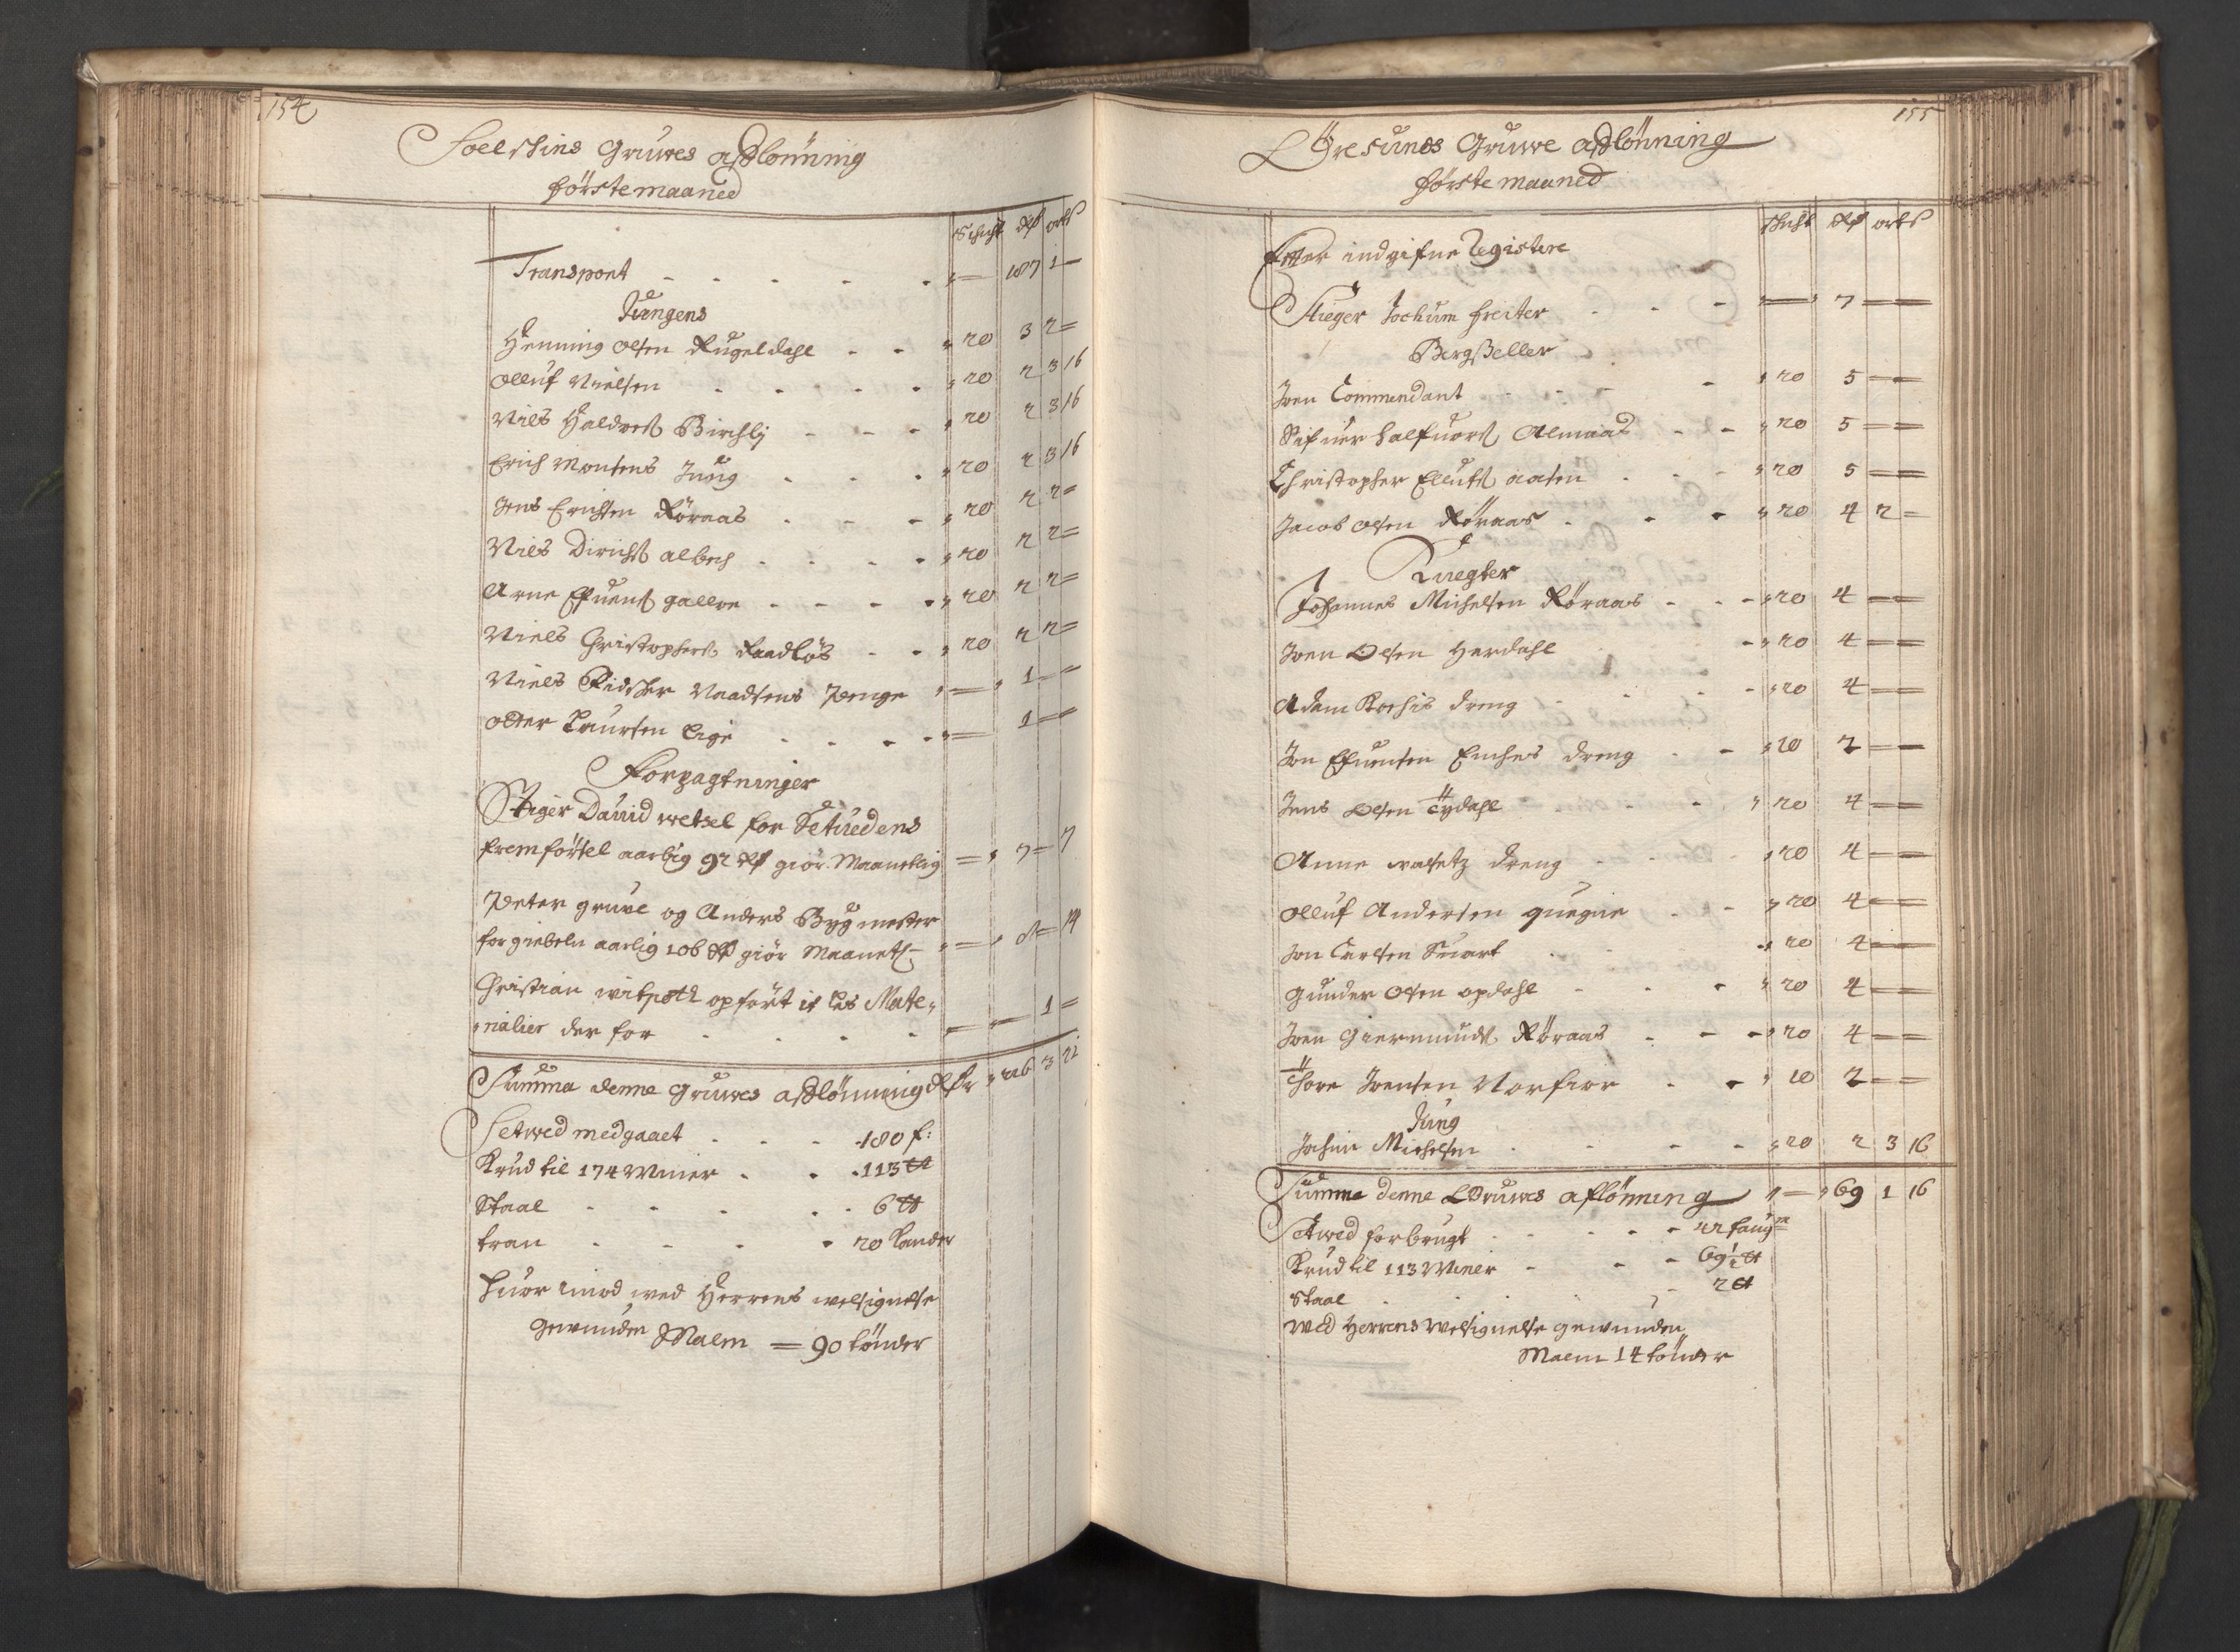 154
Soelskins Gruwes aflönning
förste maaned
Schicht Rdr ort s
Transport - - - - - 187 1 -
Jungens
Henning Olsen Rugeldahl - - 20 3 2 =
Olluf Nielsen - - - - 20 2 3 16
Nils Haldors Birchlj - - - 20 2 3 16
Erich Monsens Jung - - - 20 2 3 16
Jens Erichsen Röraas - - - 20 2 2 =
Niels Dirichs - - - 20 2 2 =
Arne Efuens - - - - 20 2 2 =
Niels Christophers Raadlös - - 20 2 2 =
Niels Madsens Penge = 1 =
Laursen lige - - - - 1 =
Forpagtninger
Stiger Dauid Wetzel for Setuedens
fremförsel aarlig 92 Rdr giör Maanetlig = 7 = 7
Peter gruve og Anders Bygmester
for giebeln aarlig 106 Rdr giör Maanetl = 8 = 14
Christian opfört is Mate-
rialier der for - - - - 1 =
Summa denne Gruwes aflönning Rdr 3 21
Setwed medgaaet - - - 180 f:
Krud til 174 Miner - - 113 ℔
Staal - - - - - 6 ℔
tran - - - - 20 Kander
huor imod wed Herrens welsignelse
gewunden Malm = 90 tönder
155
Öresunds Gruwe aflönning
förste maaned
Schicht Rdr ort s
Efter indgifne Registere
Stieger Jochum Freiter - - - 7 =
Bergßeller
Joen Commendant - - - 20 5 =
Sifuer Halfuors Almaas - - 20 5 =
Christopher Ellufs Aasen - - - 20 5 =
Jacob Olsen Röraas - - - 20 4 2 =
Knegter
Johannes Michelsen Röraas - - - 20 4 =
Joen Olsen Herdahl - 20 4 =
Adam Kochis dreng - - - 20 4 =
Jon Efuensen dreng - - 10 2 =
Jens Olsen Tÿdahl - - - 20 4 =
Anne dreng - - - 20 4 =
Olluf Andersen - - 20 4 =
Jon Carlsen Suart - - 20 4 =
Gunder Olsen Opdahl - - - 20 4 =
Joen Giermunds Röraas - - - 20 4 =
Thore Joensen - - 10 2 =
Jung
Jochim Michelsen - - - - 20 2 3 16
Summa denne Gruwes aflönning = 69 1 16
Setwed forbrugt - - - - 42 faugn
Krud til 113 Miner - - - 69½ ℔
Staal - - - - 2 ℔
Wed Herrens Welsignelse gewunden
Malm 14 tönder